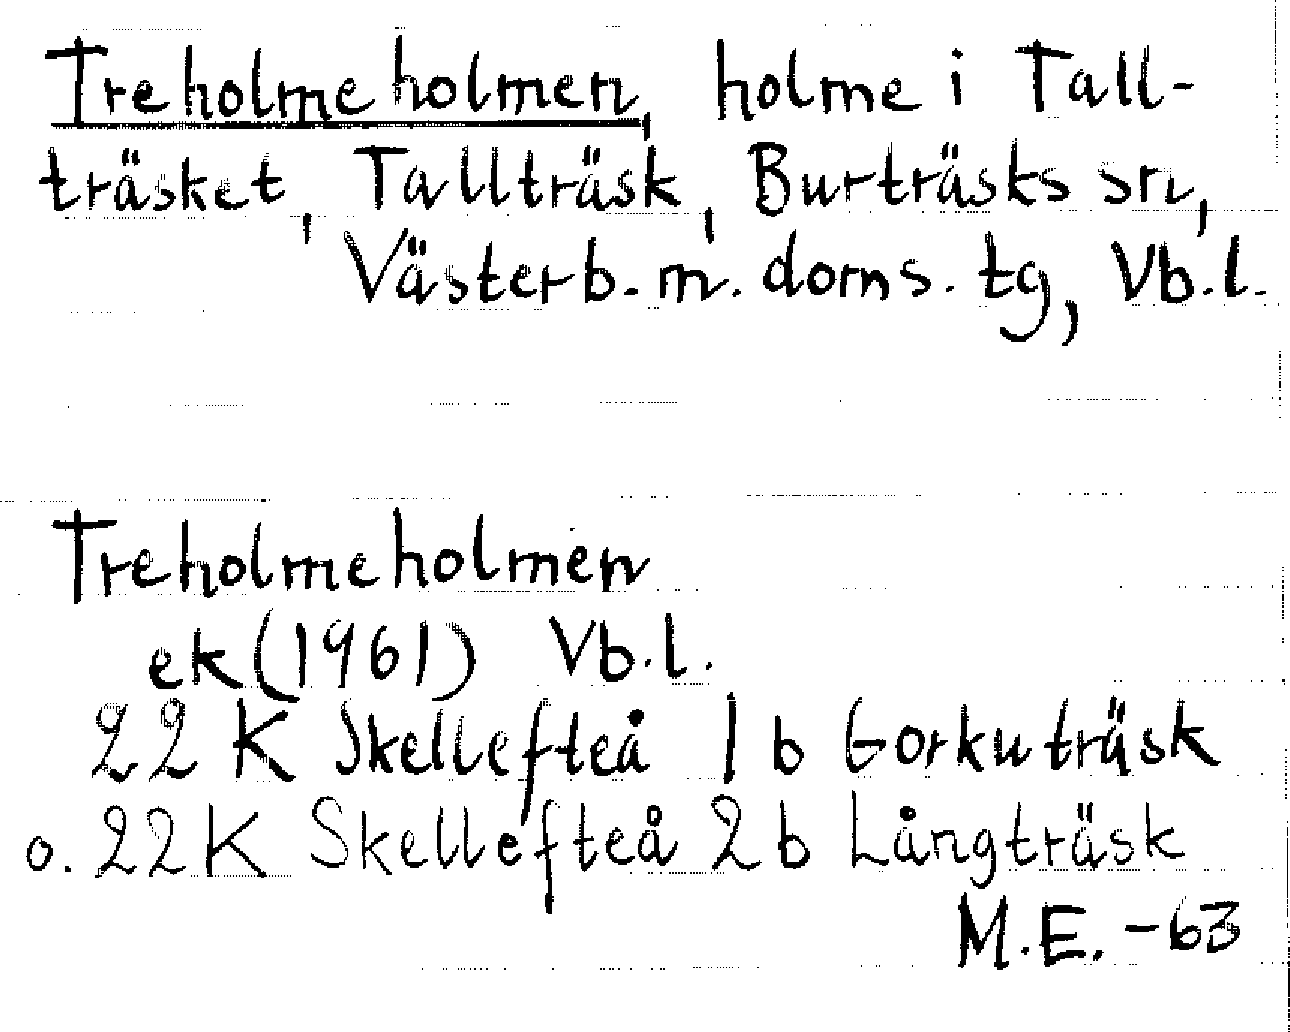 Treholmeholmen, holme i Tall-
träsket, Tallträsk, Burträsks sn,
Västerb. m. doms. tg, Vb.l.
Treholmeholmen
ek (1961) Vb.l.
22 K Skellefteå 1 b Gorkuträsk
o. 22 K Skellefteå 2 b Långträsk
M.E. -63